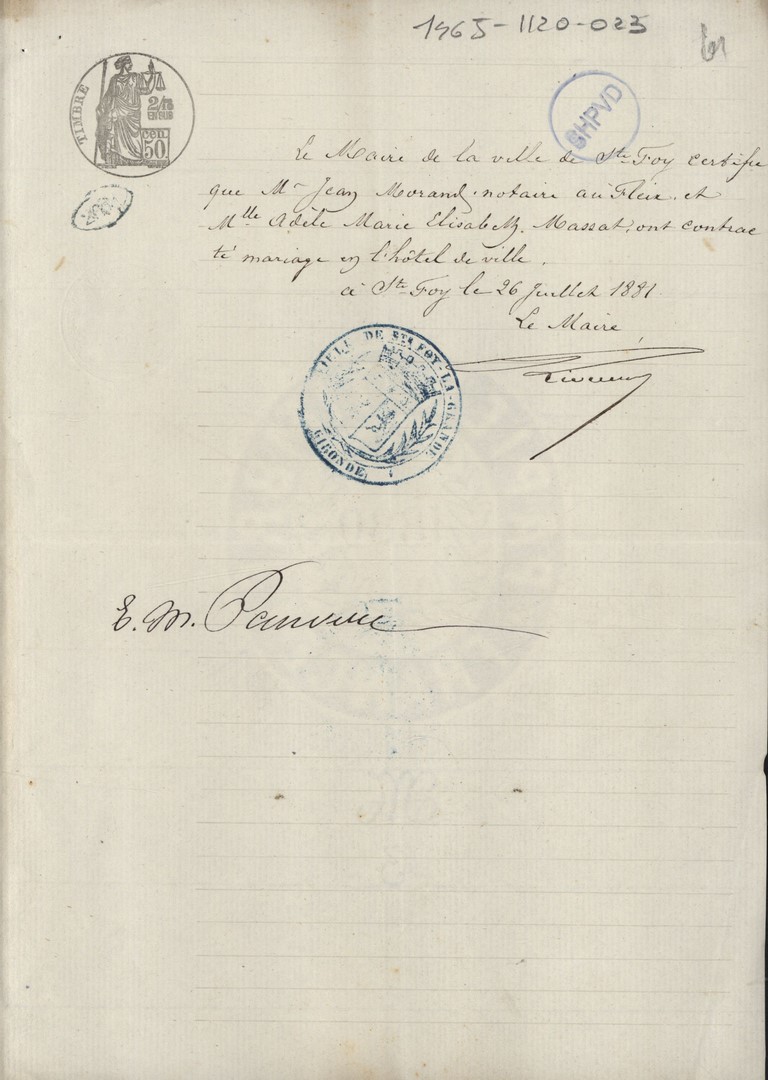 1565-1120-023
TIMBRE
2/10
EN SUS
cen
50
SHPVD
Le Maire de la ville de Ste Foy certifie
que Mr Jean Morand, notaire au Fleix, et
Mlle Adèle Marie Elisabeth Massat, ont contrac
té mariage en l'hôtel de ville.
à Ste Foy le 26 Juillet 1881.
Le Maire
VILLE DE STE FOY-LA-GRANDE
GIRONDE
E. M.